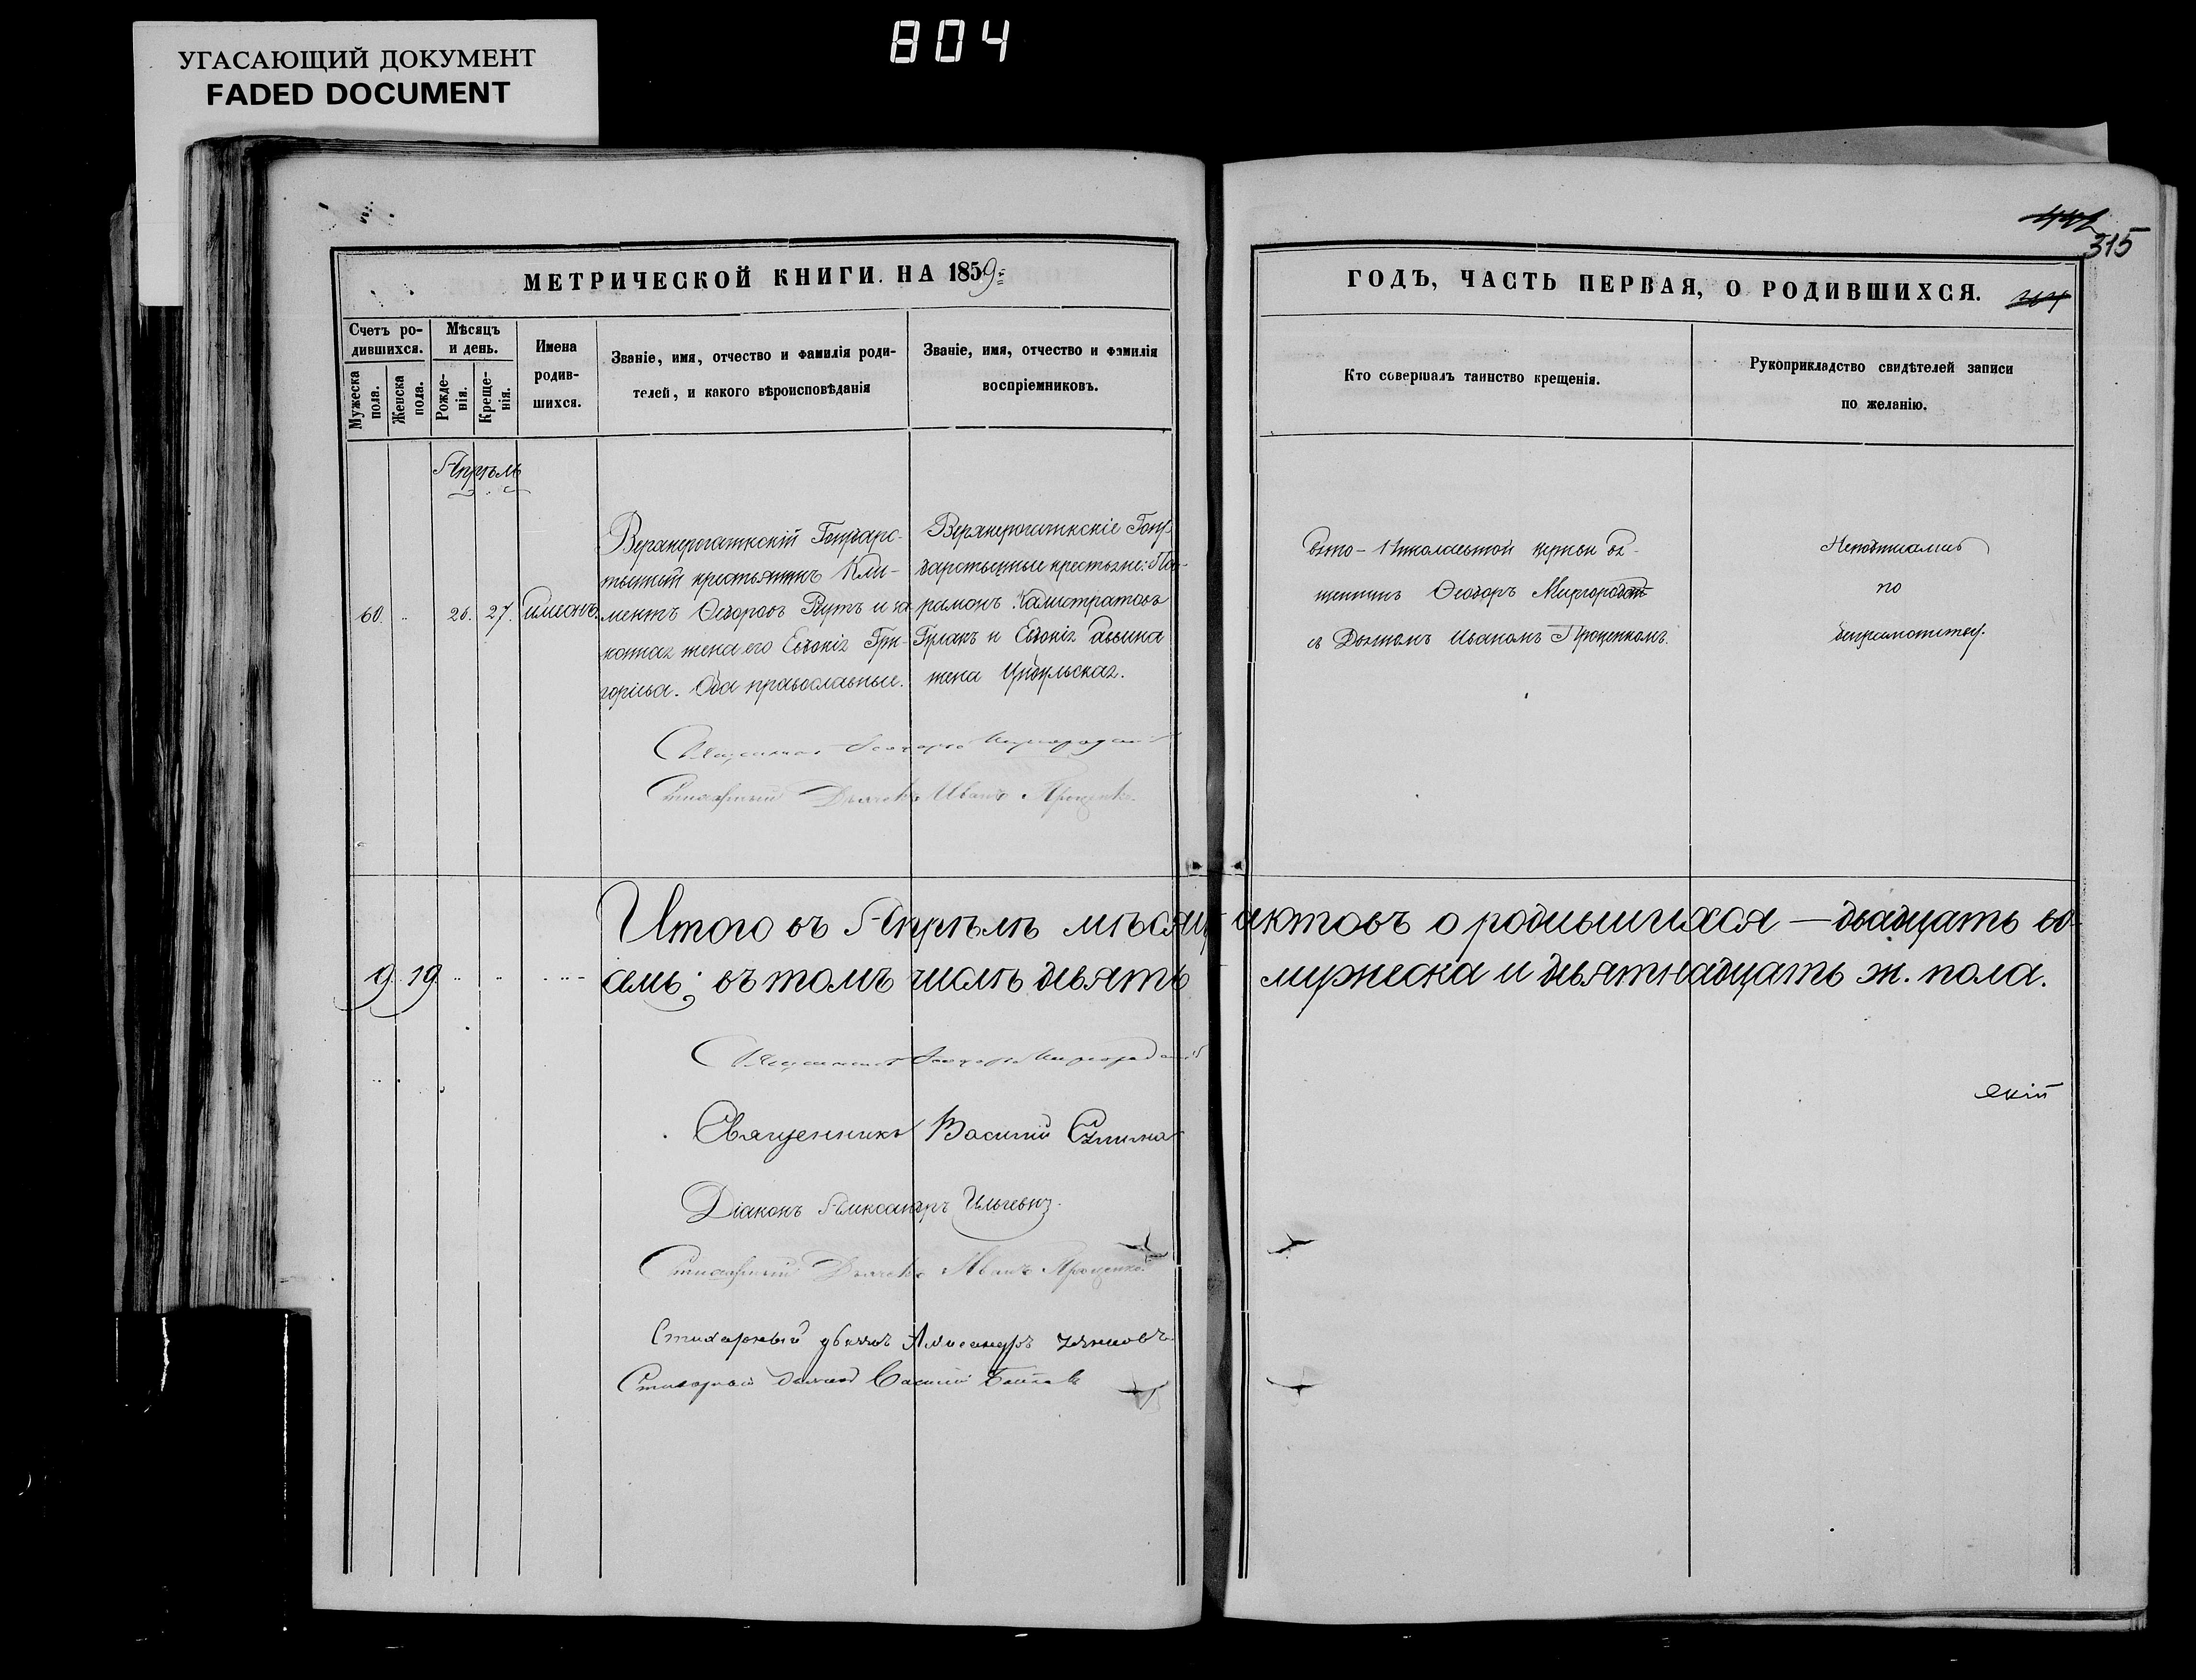 804
УГАСАЮЩИЙ ДОКУМЕНТ
FADED DOCUMENT
315
МЕТРИЧЕСКОЙ КНИГИ НА 1859
ГОДЪ, ЧАСТЬ ПЕРВАЯ, О РОДИВШИХСЯ.
Счетъ ро-
дившихся.
Мужеска
пола.
Женска
пола.
Мѣсяцъ
и день.
Рожде-
нія.
Креще-
нія.
Имена
родив-
шихся.
Званіе, имя, отчество и фамилія роди-
телей, и какого вѣроисповѣданія
Званіе, имя, отчество и фамилія
воспріемниковъ.
Кто совершалъ таинство крещенія.
Рукоприкладство свидѣтелей записи
по желанію.
Апрѣль
60. 26. 27. Симеонъ.
Верхнерогачикскій Государс-
твенный крестьянинъ Кли-
ментъ Ѳедоровъ и за-
конная жена его Евдокія Гри-
горіева. Оба православные.
Верхнерогачикскіе Госу-
дарственные крестьяне:
Калистратовъ
и Евдокія Саввина
жена Цибульская.
Свято-Николаевской церкви Свя-
щенникъ Ѳеодоръ Миргородскій
съ Дьячкомъ Иваномъ Проценкомъ.
Неподписались
по
безграмотству.
Священникъ Ѳеодоръ Миргородскій
Стихарный Дьячекъ Иванъ Проценко.
Итого въ Апрѣлѣ мѣсяцѣ актовъ о родившихся — двадцать во-
9. 19. семь; въ томъ числѣ девять мужеска и девятнадцать ж. пола.
Священникъ Ѳеодоръ Миргородскій
Священникъ Василій
скій
Діаконъ Александръ
Стихарный Дьячекъ Иванъ Проценко.
Стихарный дьячекъ Александръ
Стихарный дьячекъ Василій